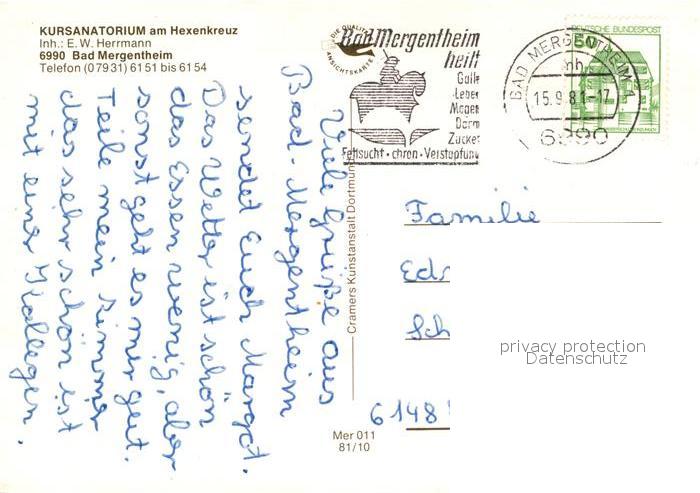 KURSANATORIUM am Hexenkreuz
Inh.: E. W. Herrmann
6990 Bad Mergentheim
Telefon (07931) 6151 bis 6154
DIE QUALITÄTS
ANSICHTSKARTE
Bad Mergentheim
heilt
Galle
Leber
Magen
Darm
Zucker
Fettsucht · chron · Verstopfung
BAD MERGENTHEIM 1
mh
15.9.81-17
6990
DEUTSCHE BUNDESPOST
50
Viele Grüße aus
Bad-Mergentheim
sendet Euch Margot.
Das Wetter ist schön
das Essen wenig, aber
sonst geht es mir gut.
Teile mein Zimmer
das sehr schön ist
mit einer Kollegin.
Cramers Kunstanstalt Dortmund
Mer 011
81/10
Familie
6148
privacy protection
Datenschutz